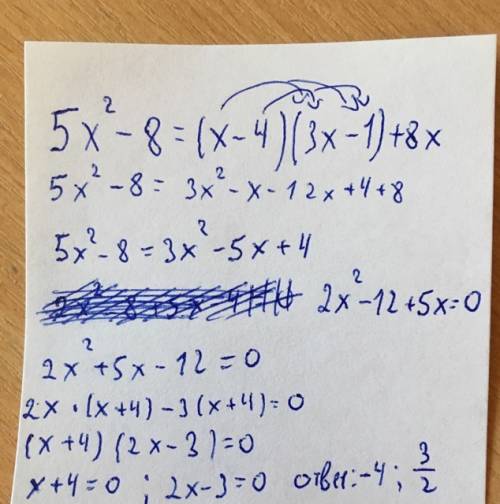 5x² - 8 = (x - 4)(3x - 1) + 8x
5x² - 8 = 3x² - x - 12x + 4 + 8
5x² - 8 = 3x² - 5x + 4
2x² - 12 + 5x = 0
2x² + 5x - 12 = 0
2x · (x + 4) - 3(x + 4) = 0
(x + 4)(2x - 3) = 0
x + 4 = 0 ; 2x - 3 = 0 ответ: -4 ; 3/2